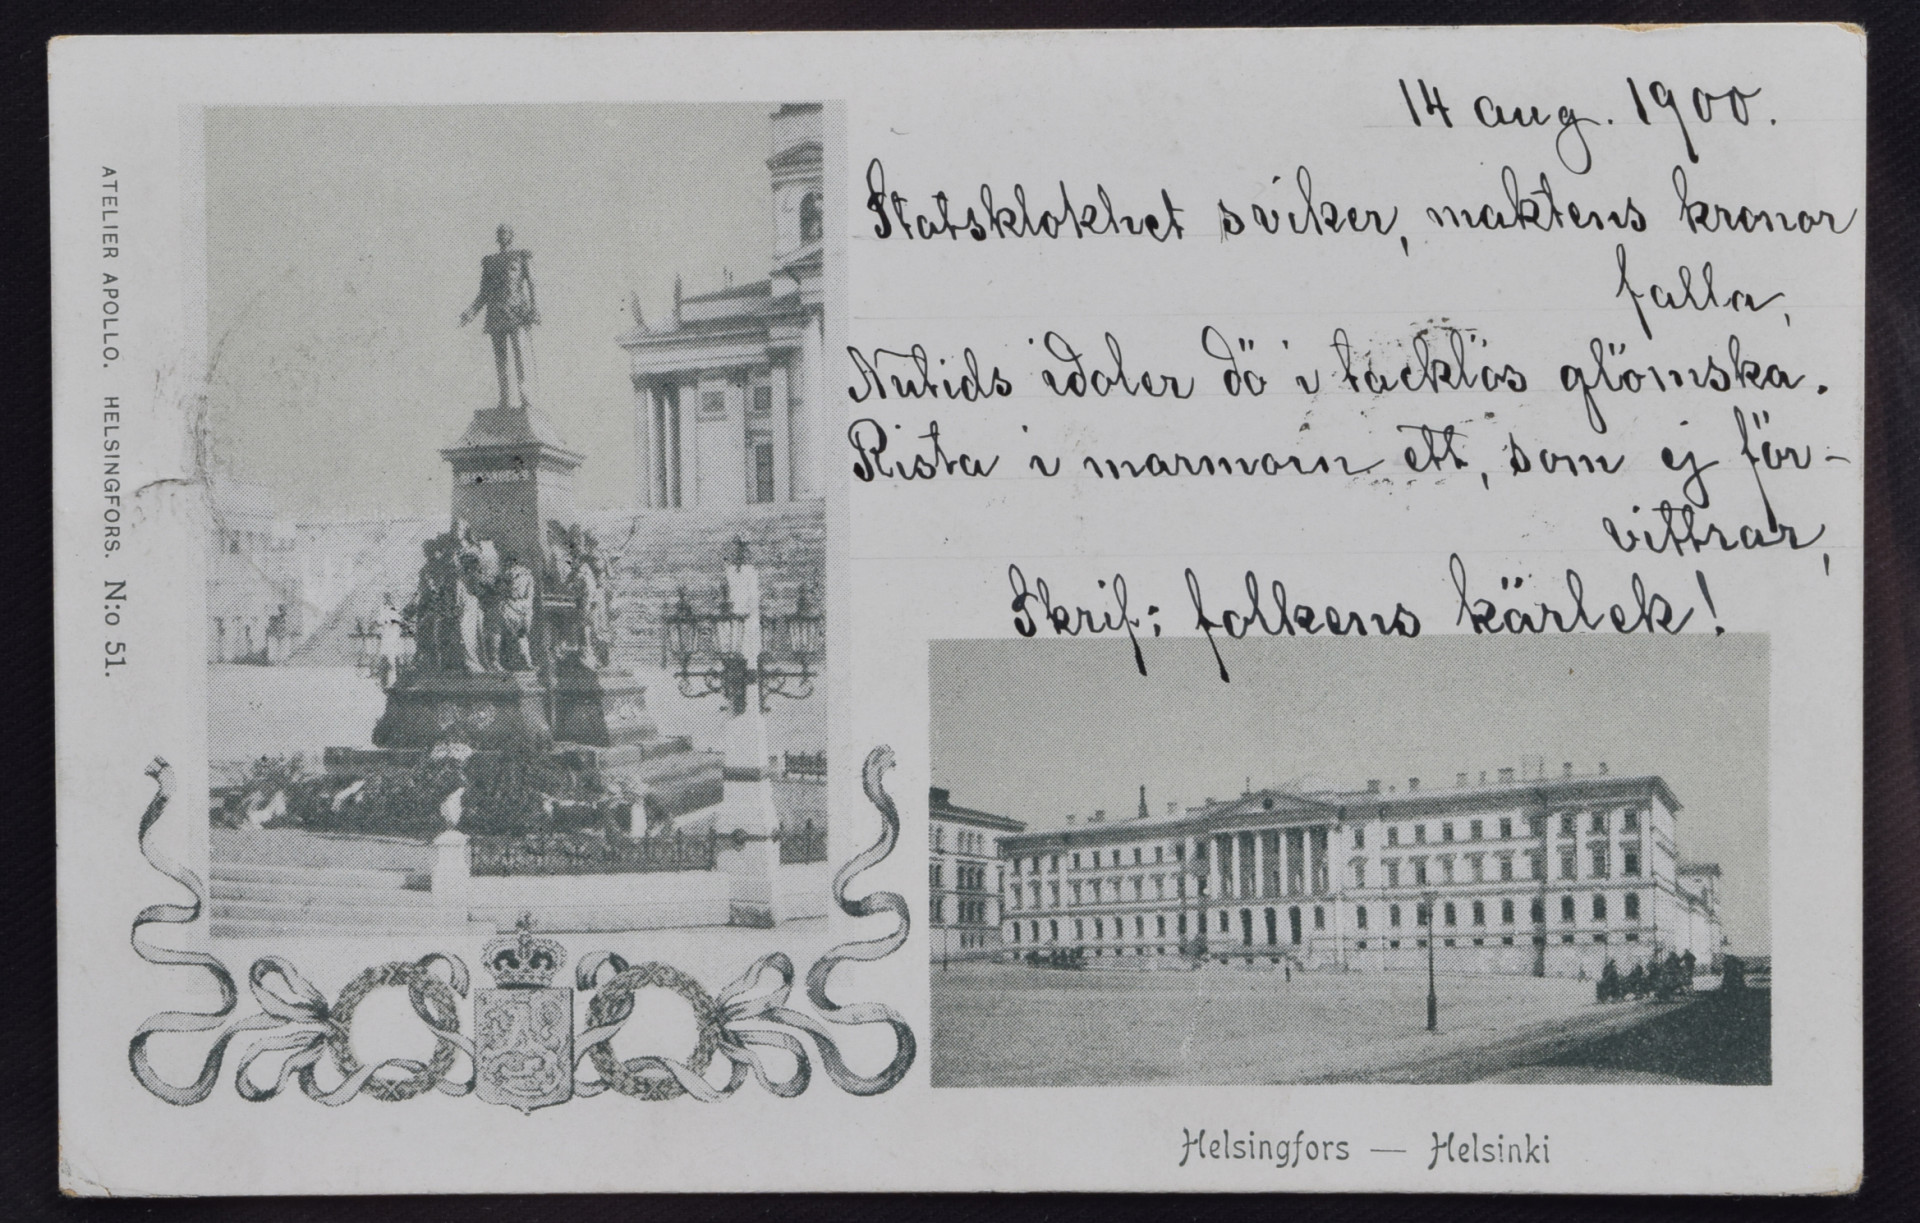 14 aug. 1900.
Statsklokhet sviker, maktens kronor
falla,
Nutids idoler dö i tacklös glömska.
Rista i marmorn ett, som ej för-
vittrar,
Skrif: folkens kärlek!
ATELIER APOLLO. HELSINGFORS. N:o 51.
Helsingfors — Helsinki